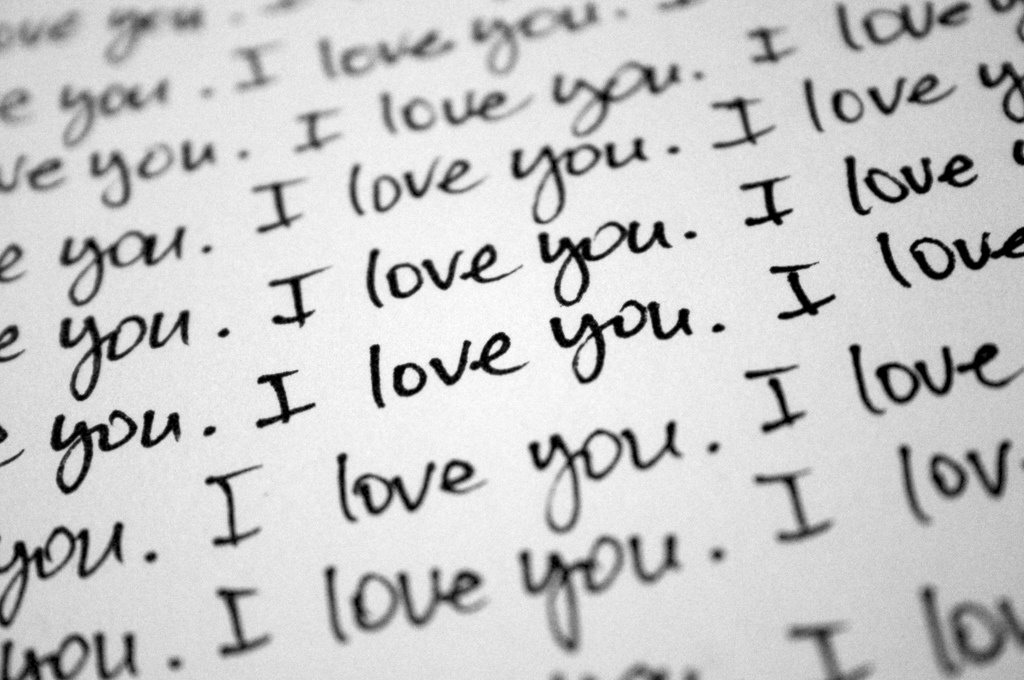 love you. I
you. I love you. I
ve you. I love you. I love
you. I love you. I love y
you. I love you. I love
you. I love you. I love
you. I love you. I love
you. I love you. I lov
you. I lov